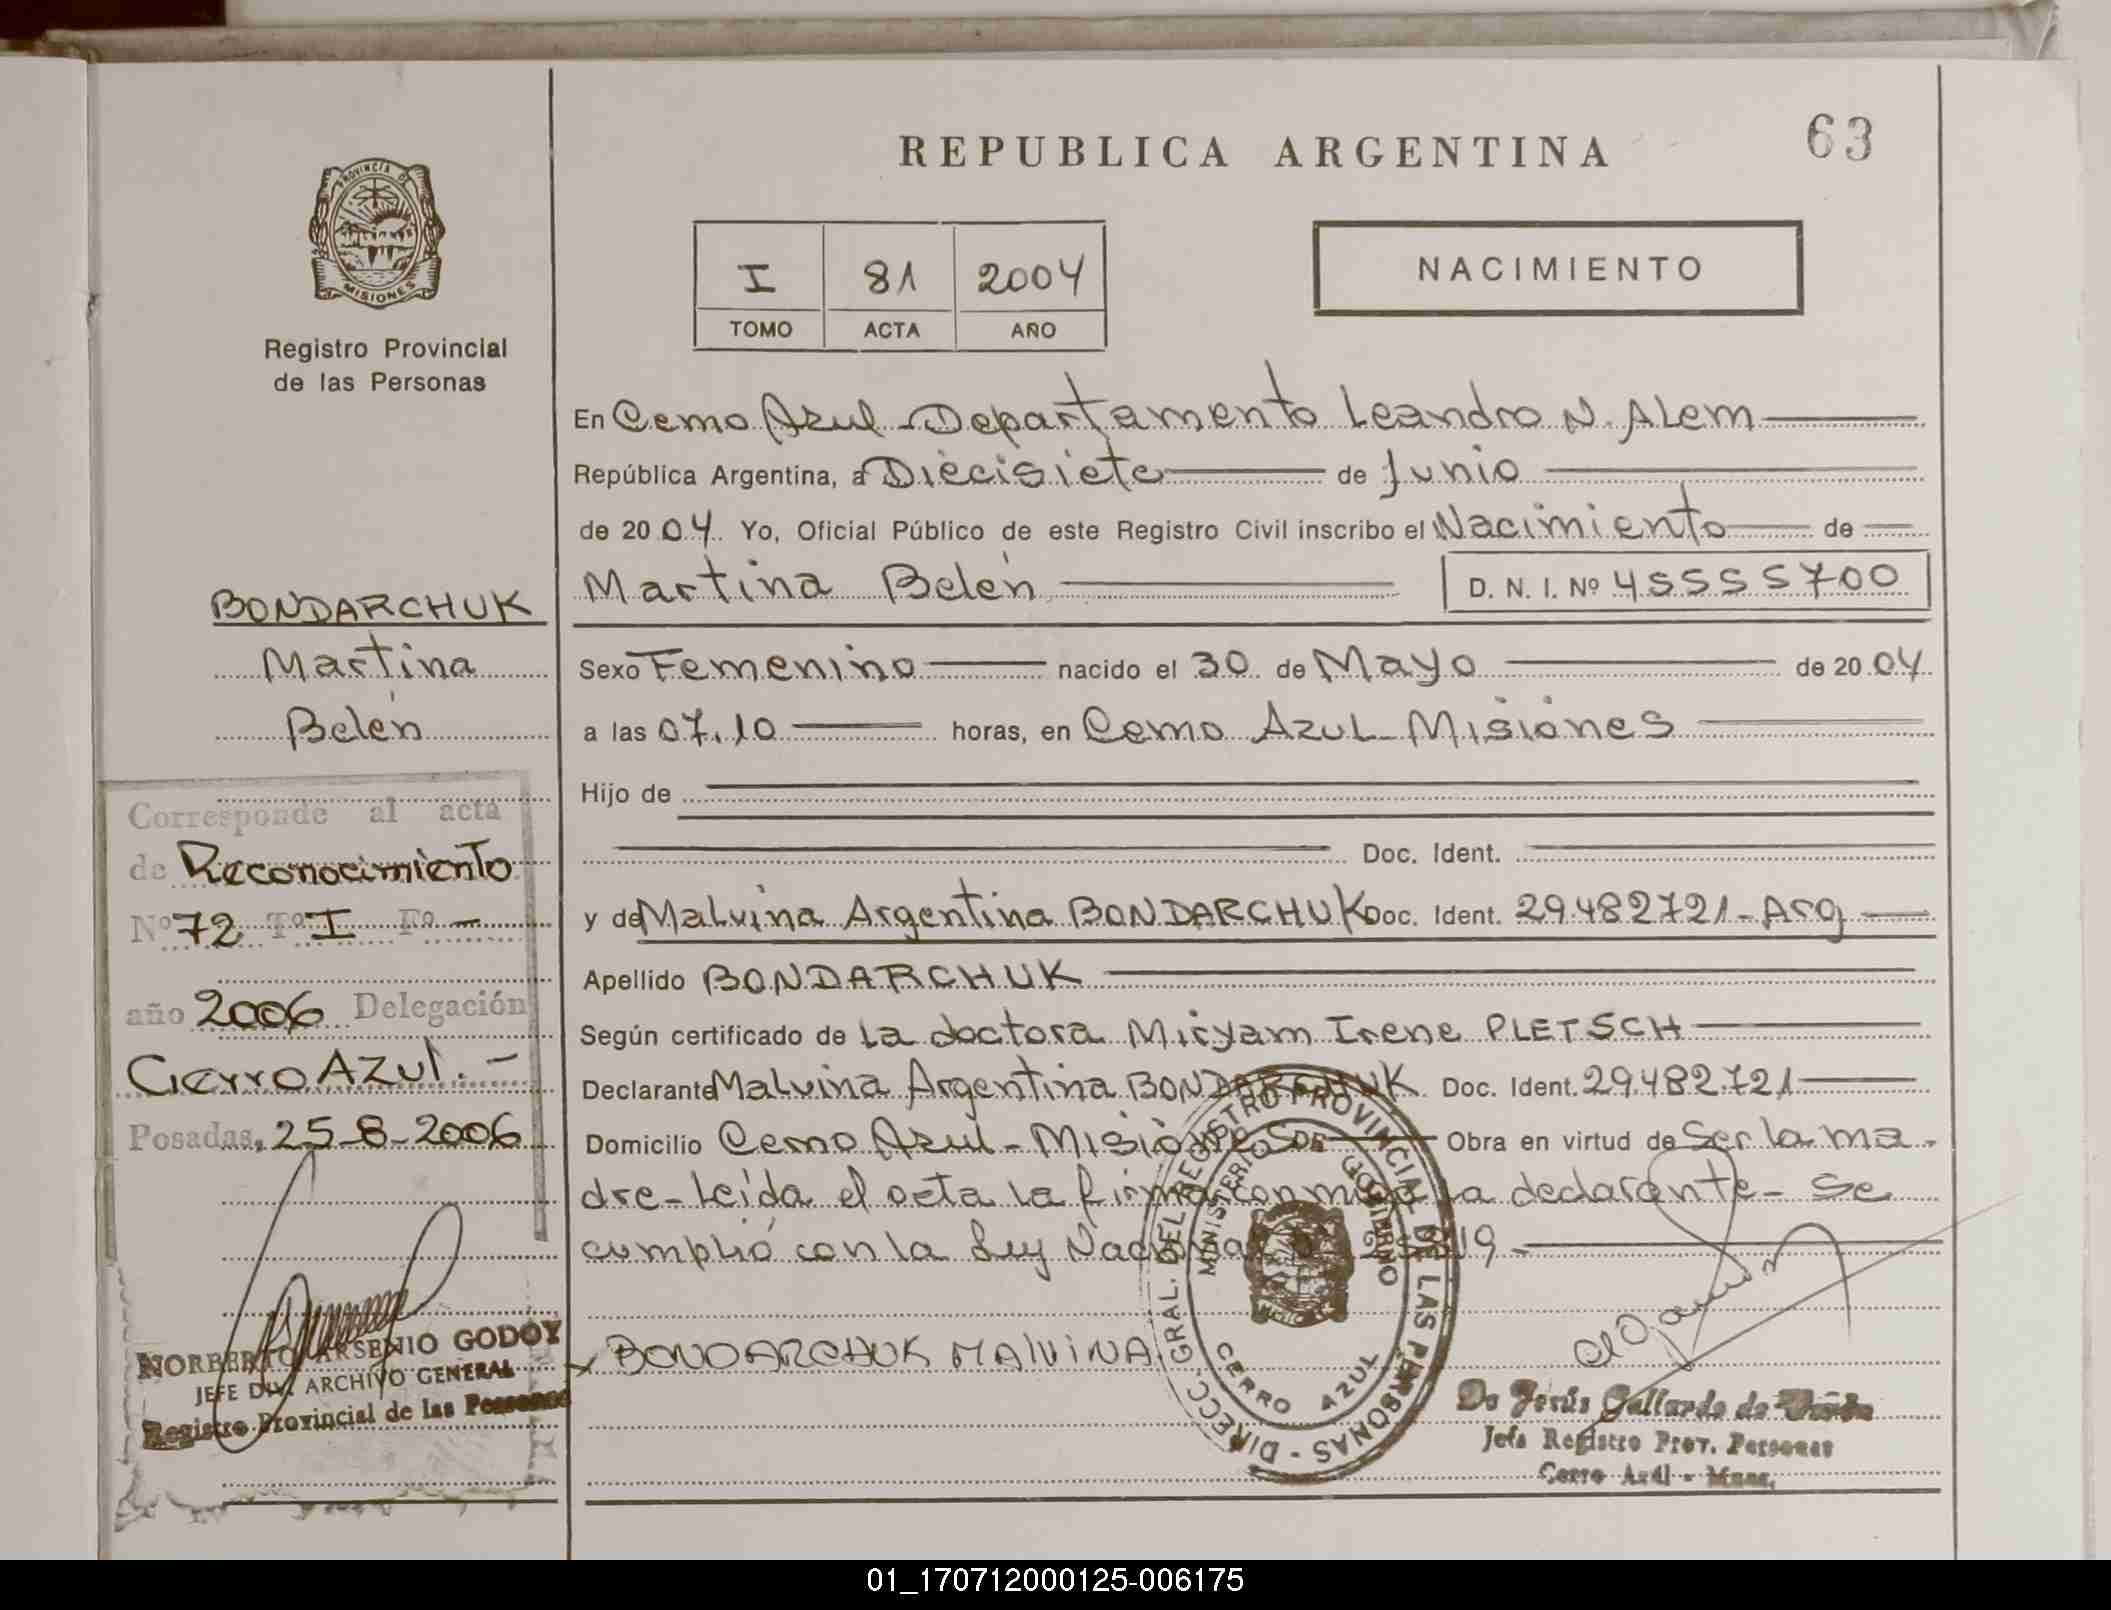 63
REPUBLICA ARGENTINA
PROVINCIA DE
MISIONES
Registro Provincial
de las Personas
I 81 2004
TOMO ACTA AÑO
NACIMIENTO
En Cerro Azul - Departamento Leandro N. Alem
República Argentina, a Diecisiete de Junio
de 2004 Yo, Oficial Público de este Registro Civil inscribo el Nacimiento de
Martina Belén D. N. I. Nº 45555700
BONDARCHUK
Martina
Belén
Sexo Femenino nacido el 30 de Mayo de 2004
a las 07.10 horas, en Cerro Azul - Misiones
Hijo de
Doc. Ident.
y de Malvina Argentina BONDARCHUK Doc. Ident. 29.482.721 - Arg
Apellido BONDARCHUK
Según certificado de La doctora Miryam Irene PLETSCH
Declarante Malvina Argentina BONDARCHUK Doc. Ident. 29.482.721
Domicilio Cerro Azul - Misiones Obra en virtud de Ser la ma
dre - Leída el acta la firma conmigo la declarante - Se
cumplió con la Ley Nacional
BONDARCHUK MALVINA
Corresponde al acta
de Reconocimiento
Nº 72 Tº I Fº -
año 2006 Delegación
Cerro Azul. -
Posadas, 25-8-2006
NORBERTO ARSENIO GODOY
JEFE DIV. ARCHIVO GENERAL
Registro Provincial de las Personas
DIRECC. GRAL. DEL REGISTRO PROVINCIAL DE LAS PERSONAS
MINISTERIO DE GOBIERNO
CERRO AZUL
De Jesús Gallardo de
Jefa Registro Prov. Personas
Cerro Azul - Mnes.
01_170712000125-006175